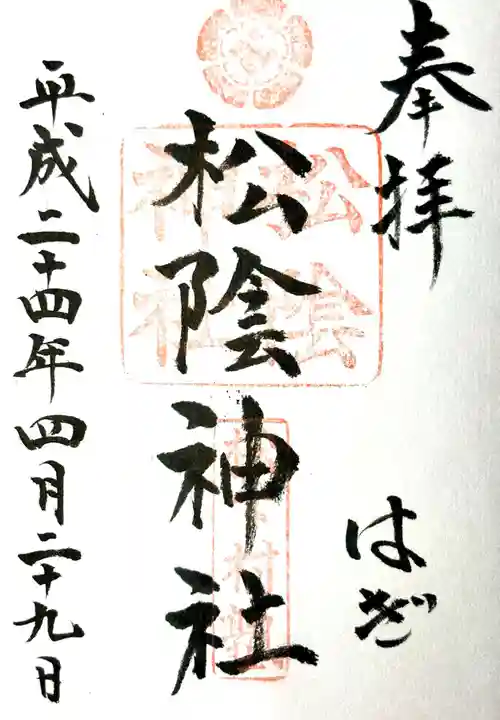 奉拝
はぎ
松陰神社
松陰
神社
平成二十四年四月二十九日